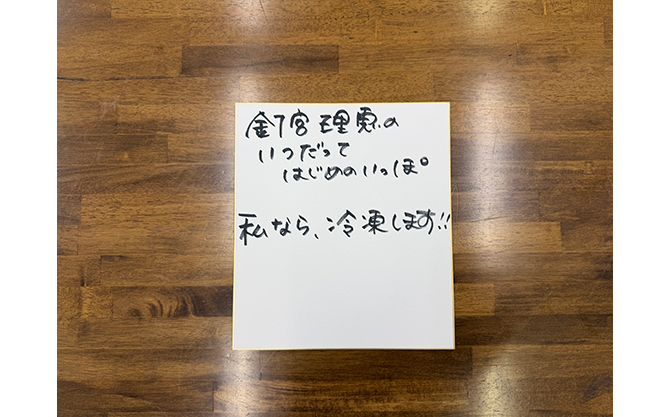 釘宮理恵の
いつだって
はじめのいっぽ
私なら、冷凍します!!